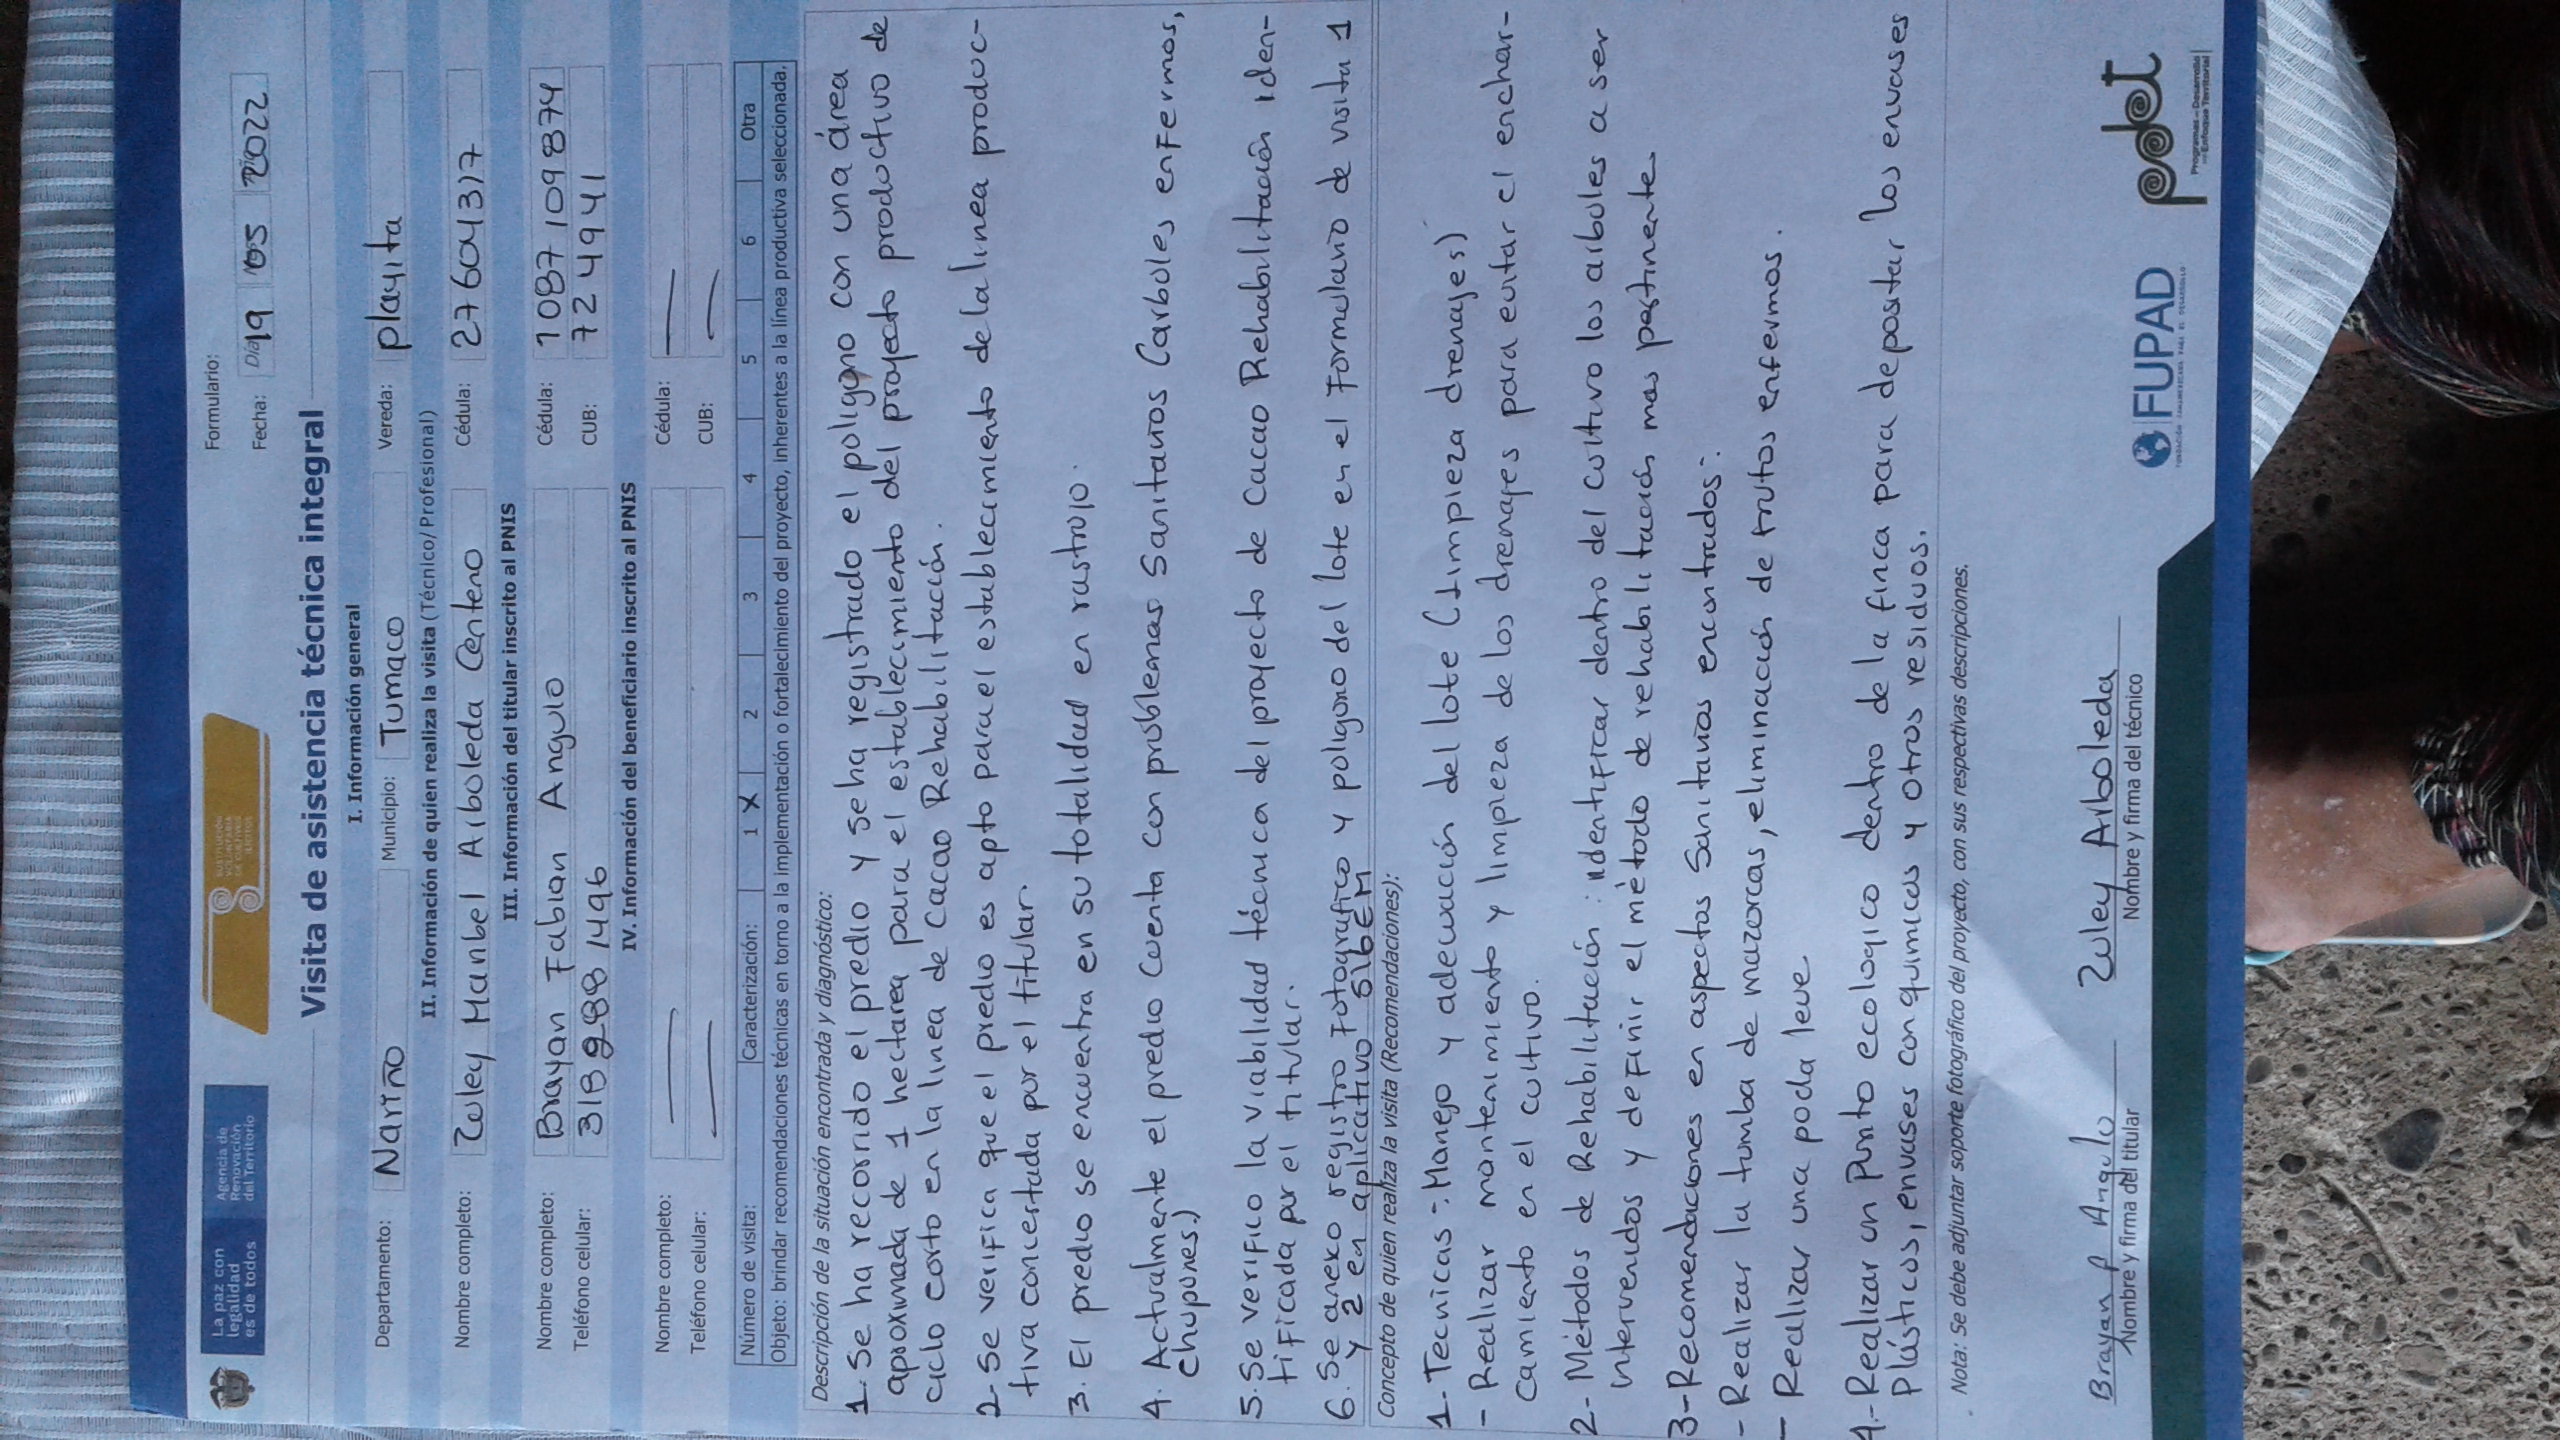 La paz con
legalidad
es de todos
Agencia de
Renovación
del Territorio
SUSTITUCIÓN
VOLUNTARIA
DE CULTIVOS
ILÍCITOS
Formulario:
Fecha: Día 19 05 2022
Visita de asistencia técnica integral
I. Información general
Departamento: Nariño Municipio: Tumaco Vereda: playita
II. Información de quien realiza la visita (Técnico/ Profesional)
Nombre completo: Zuley Maribel Arboleda Centeno Cédula: 27604317
III. Información del titular inscrito al PNIS
Nombre completo: Brayan Fabian Angulo Cédula: 1087109874
Teléfono celular: 3182881496 CUB: 724941
IV. Información del beneficiario inscrito al PNIS
Nombre completo: — Cédula: —
Teléfono celular: — CUB: —
Número de visita: Caracterización: 1 X 2 3 4 5 6 Otra
Objeto: brindar recomendaciones técnicas en torno a la implementación o fortalecimiento del proyecto, inherentes a la línea productiva seleccionada.
Descripción de la situación encontrada y diagnóstico:
1. Se ha recorrido el predio y se ha registrado el poligono con una área
aproximada de 1 hectarea para el establecimiento del proyecto productivo de
ciclo corto en la linea de cacao Rehabilitación.
2- Se verifica que el predio es apto para el establecimiento de la linea produc-
tiva concertada por el titular.
3. El predio se encuentra en su totalidad en rastrojo.
4. Actualmente el predio cuenta con problemas Sanitarios (arboles enfermos,
chupones.)
5. Se verifico la viabilidad técnica del proyecto de cacao Rehabilitación iden-
tificada por el titular.
6. Se anexo registro fotografico y poligono del lote en el Formulario de visita 1
y 2 en aplicativo SIGEM
Concepto de quien realiza la visita (Recomendaciones):
1- Tecnicas: Manejo y adecuación del lote (limpieza drenajes)
- Realizar mantenimiento y limpieza de los drenajes para evitar el enchar-
camiento en el cultivo.
2- Métodos de Rehabilitación: identificar dentro del cultivo los arboles a ser
intervenidos y definir el método de rehabilitación mas pertinente
3- Recomendaciones en aspectos Sanitarios encontrados:
- Realizar la tumba de mazorcas, eliminación de frutos enfermos.
- Realizar una poda leve
4.- Realizar un Punto ecologico dentro de la finca para depositar los envases
plásticos, envases con quimicos y otros residuos.
. Nota: Se debe adjuntar soporte fotográfico del proyecto, con sus respectivas descripciones.
Brayan f Angulo
Nombre y firma del titular
Zuley Arboleda
Nombre y firma del técnico
FUPAD
FUNDACIÓN PANAMERICANA PARA EL DESARROLLO
pdet
Programas de Desarrollo
con Enfoque Territorial